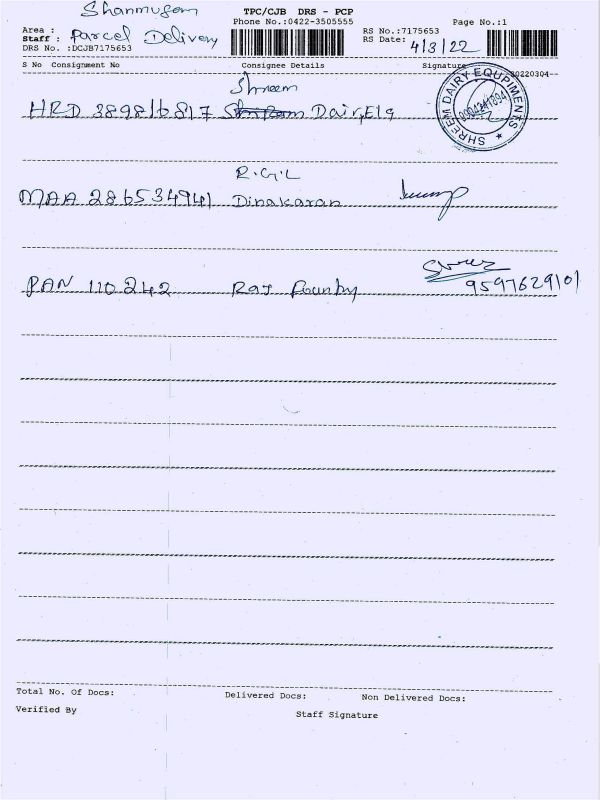 Shanmugam
TPC/CJB DRS - PCP
Phone No.:0422-3505555
Page No.:1
Area :
Staff : Parcel Delivery
DRS No. :DCJB7175653
RS No.:7175653
RS Date: 4/3/22
S No Consignment No Consignee Details Signature 20220304
Shreem
HRD 389816817 Dair,Elg
SHREEM DAIRY EQUPIMENTS
R.G.L
MAA 286534941 Dinakaran
PAN 110242 Raj Founby
9597629101
Total No. Of Docs: Delivered Docs: Non Delivered Docs:
Verified By Staff Signature